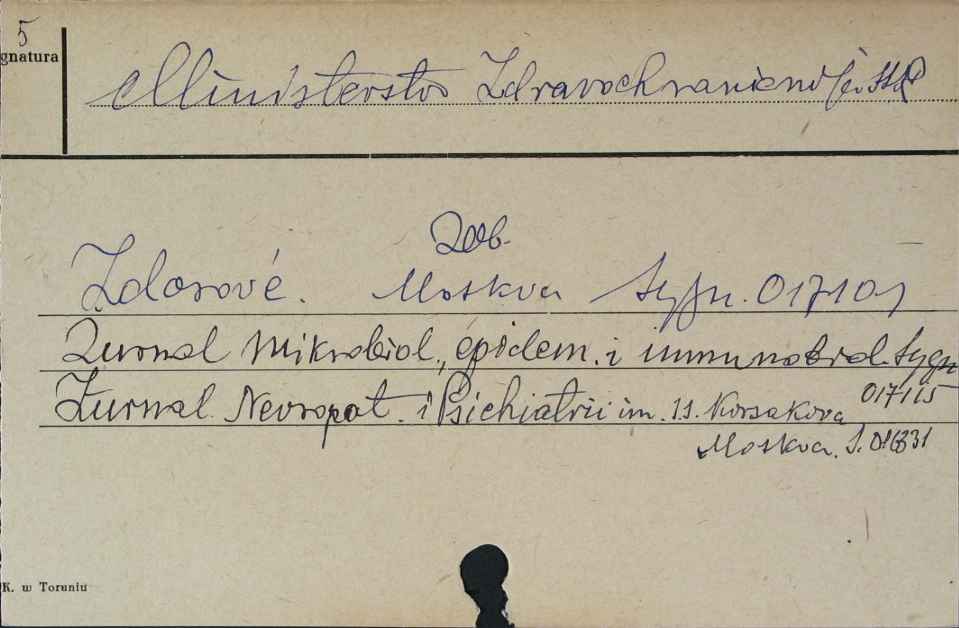 5
gnatura
Ministerstvo Zdravochranieni
Zob.
Zdorové. Moskva Sygn. 017101
Žurnal Mikrobiol., épidem. i immunobiol. Sygn
017115
Žurnal Nevropat. i Psichiatrii im. S. Korsakova
Moskva. S.
K. w Toruniu